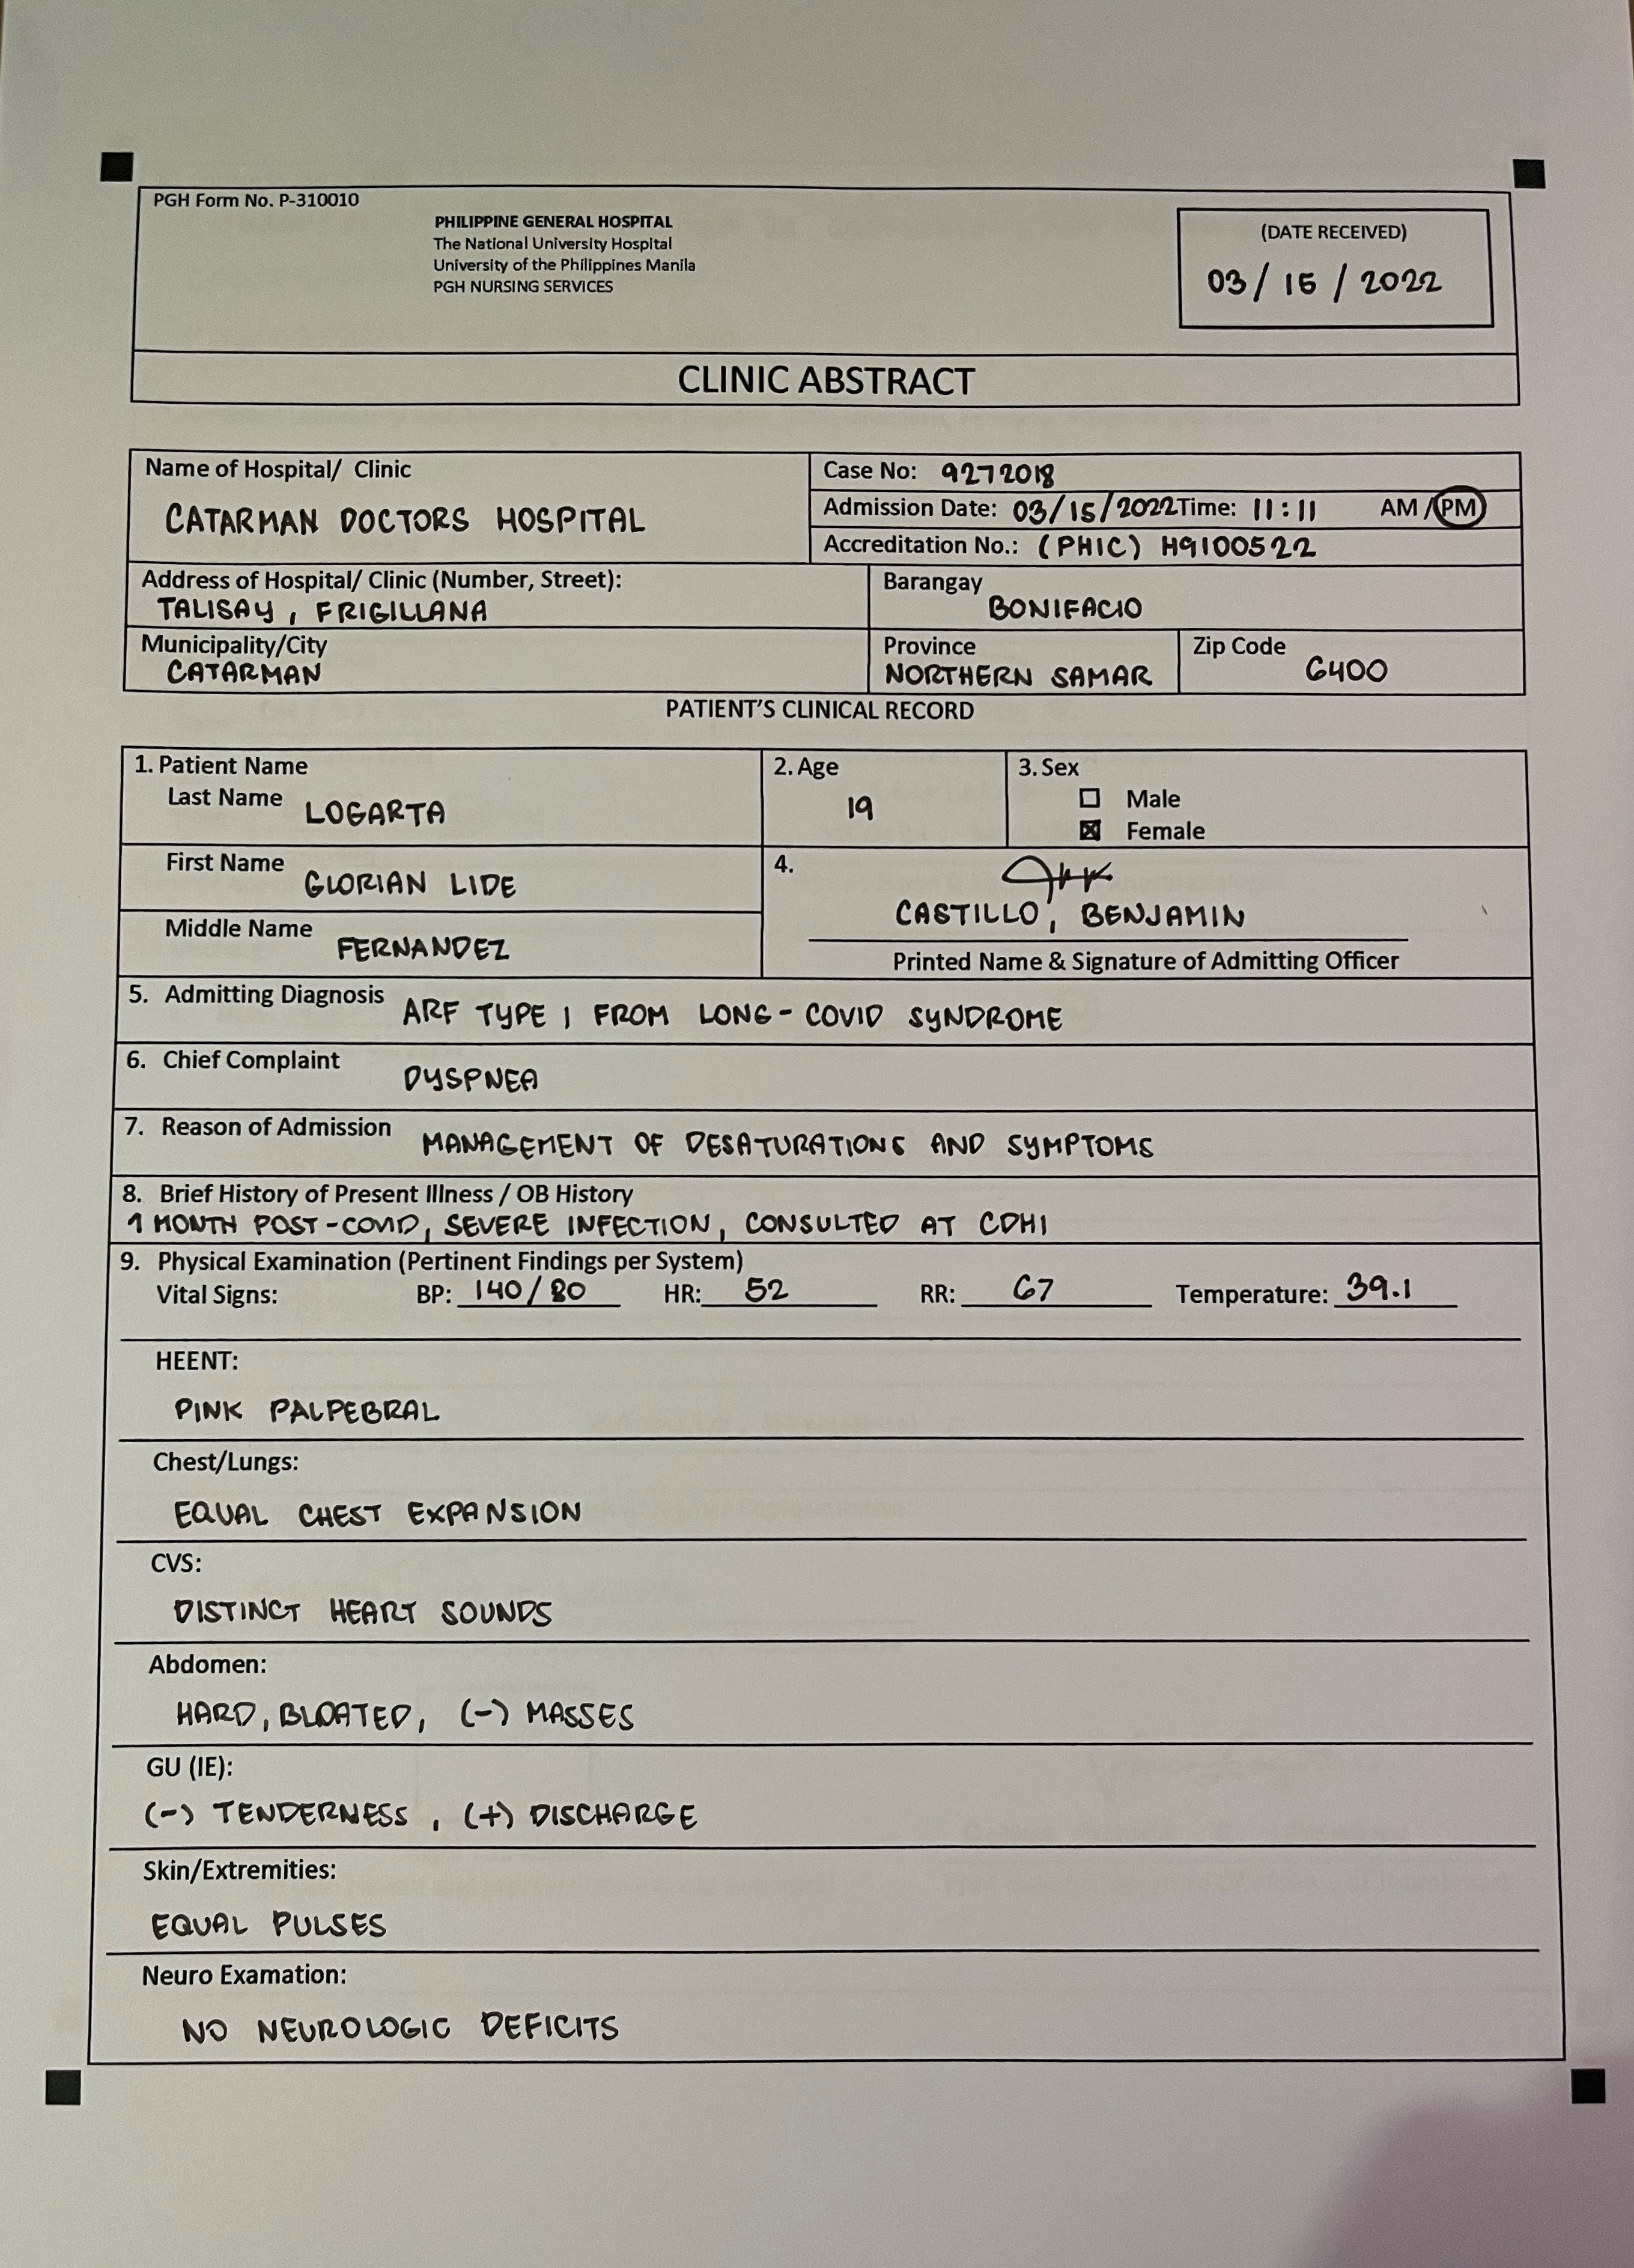 PGH Form No. P-310010
PHILIPPINE GENERAL HOSPITAL
The National University Hospital
University of the Philippines Manila
PGH NURSING SERVICES
(DATE RECEIVED)
03/ 15 / 2022
CLINIC ABSTRACT
Name of Hospital/ Clinic
CATARMAN DOCTORS HOSPITAL
Case No: 9272018
Admission Date: 03/15/2022 Time: 11:11 AM / PM
Accreditation No.: (PHIC) H9100522
Address of Hospital/ Clinic (Number, Street):
TALISAY, FRIGILLANA
Barangay
BONIFACIO
Municipality/City
CATARMAN
Province
NORTHERN SAMAR
Zip Code
6400
PATIENT'S CLINICAL RECORD
1. Patient Name
Last Name LOGARTA
2. Age
19
3. Sex
Male
Female
First Name GLORIAN LIDE
Middle Name FERNANDEZ
4.
CASTILLO, BENJAMIN
Printed Name & Signature of Admitting Officer
5. Admitting Diagnosis ARF TYPE 1 FROM LONG-COVID SYNDROME
6. Chief Complaint DYSPNEA
7. Reason of Admission MANAGEMENT OF DESATURATIONS AND SYMPTOMS
8. Brief History of Present Illness / OB History
1 MONTH POST-COVID, SEVERE INFECTION, CONSULTED AT CDHI
9. Physical Examination (Pertinent Findings per System)
Vital Signs: BP: 140/80 HR: 52 RR: 67 Temperature: 39.1
HEENT:
PINK PALPEBRAL
Chest/Lungs:
EQUAL CHEST EXPANSION
CVS:
DISTINCT HEART SOUNDS
Abdomen:
HARD, BLOATED, (-) MASSES
GU (IE):
(-) TENDERNESS, (+) DISCHARGE
Skin/Extremities:
EQUAL PULSES
Neuro Examation:
NO NEUROLOGIC DEFICITS